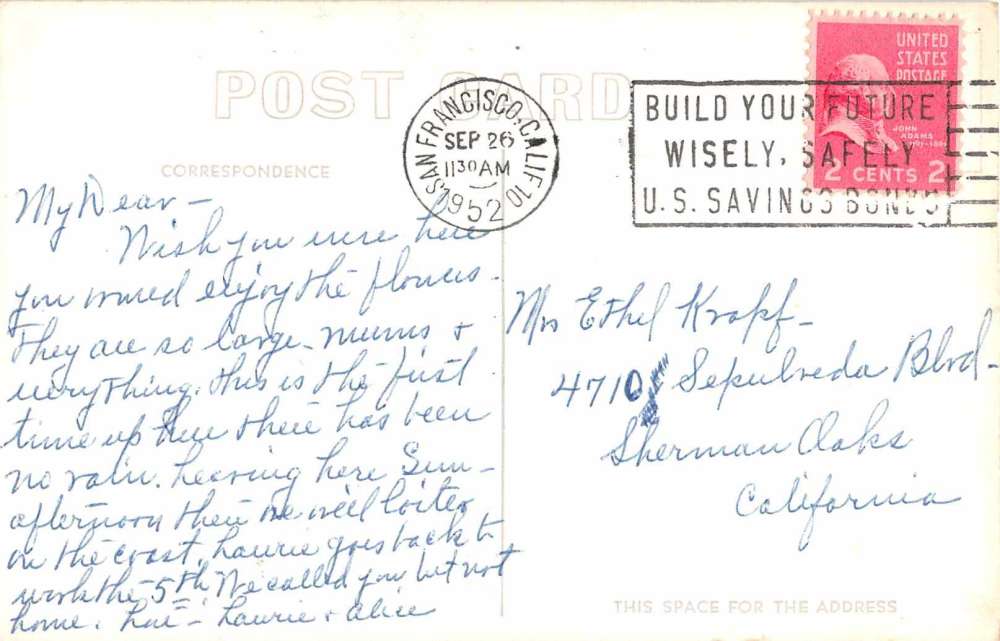 POST CARD
CORRESPONDENCE
SAN FRANCISCO, CALIF. 10
SEP 26
11 30 AM
1952
BUILD YOUR FUTURE
WISELY, SAFELY
U.S. SAVINGS BONDS
UNITED
STATES
POSTAGE
JOHN
ADAMS
2 CENTS 2
My Dear -
Wish you were here
you would enjoy the flowers -
They are so large - mums +
everything. this is the first
time up here there has been
no rain. Leaving here Sun -
afternoon then we will loiter
on the coast. Laurie goes back to
work the 5th We called you but not
home. Luv - Laurie + Alice
Mrs Ethel Kropf -
4710 Sepulveda Blvd -
Sherman Oaks
California
THIS SPACE FOR THE ADDRESS